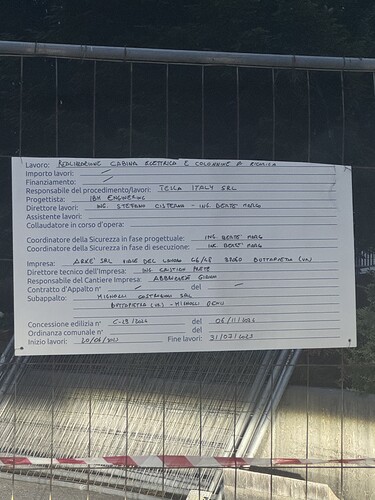 Lavoro: REALIZZAZIONE CABINA ELETTRICA E COLONNINE DI RICARICA
Importo lavori: /
Finanziamento: /
Responsabile del procedimento/lavori: TESLA ITALY SRL
Progettista: IBM ENGINEERING
Direttore lavori: ING. STEFANO CISTERNA - ING. BERTE' MARCO
Assistente lavori:
Collaudatore in corso d'opera:
Coordinatore della Sicurezza in fase progettuale: ING. BERTE' MARCO
Coordinatore della Sicurezza in fase di esecuzione: ING. BERTE' MARCO
Impresa: SRL VIALE DEL LAVORO 46/48 37060 BUTTAPIETRA (VR)
Direttore tecnico dell'Impresa: ING.
Responsabile del Cantiere Impresa:
Contratto d'Appalto n° / del /
Subappalto: MIGNOLLI COSTRUZIONI SRL
BUTTAPIETRA (VR) - MIGNOLLI
Concessione edilizia n° del 06/11/
Ordinanza comunale n° del
Inizio lavori: Fine lavori: 31/07/2023